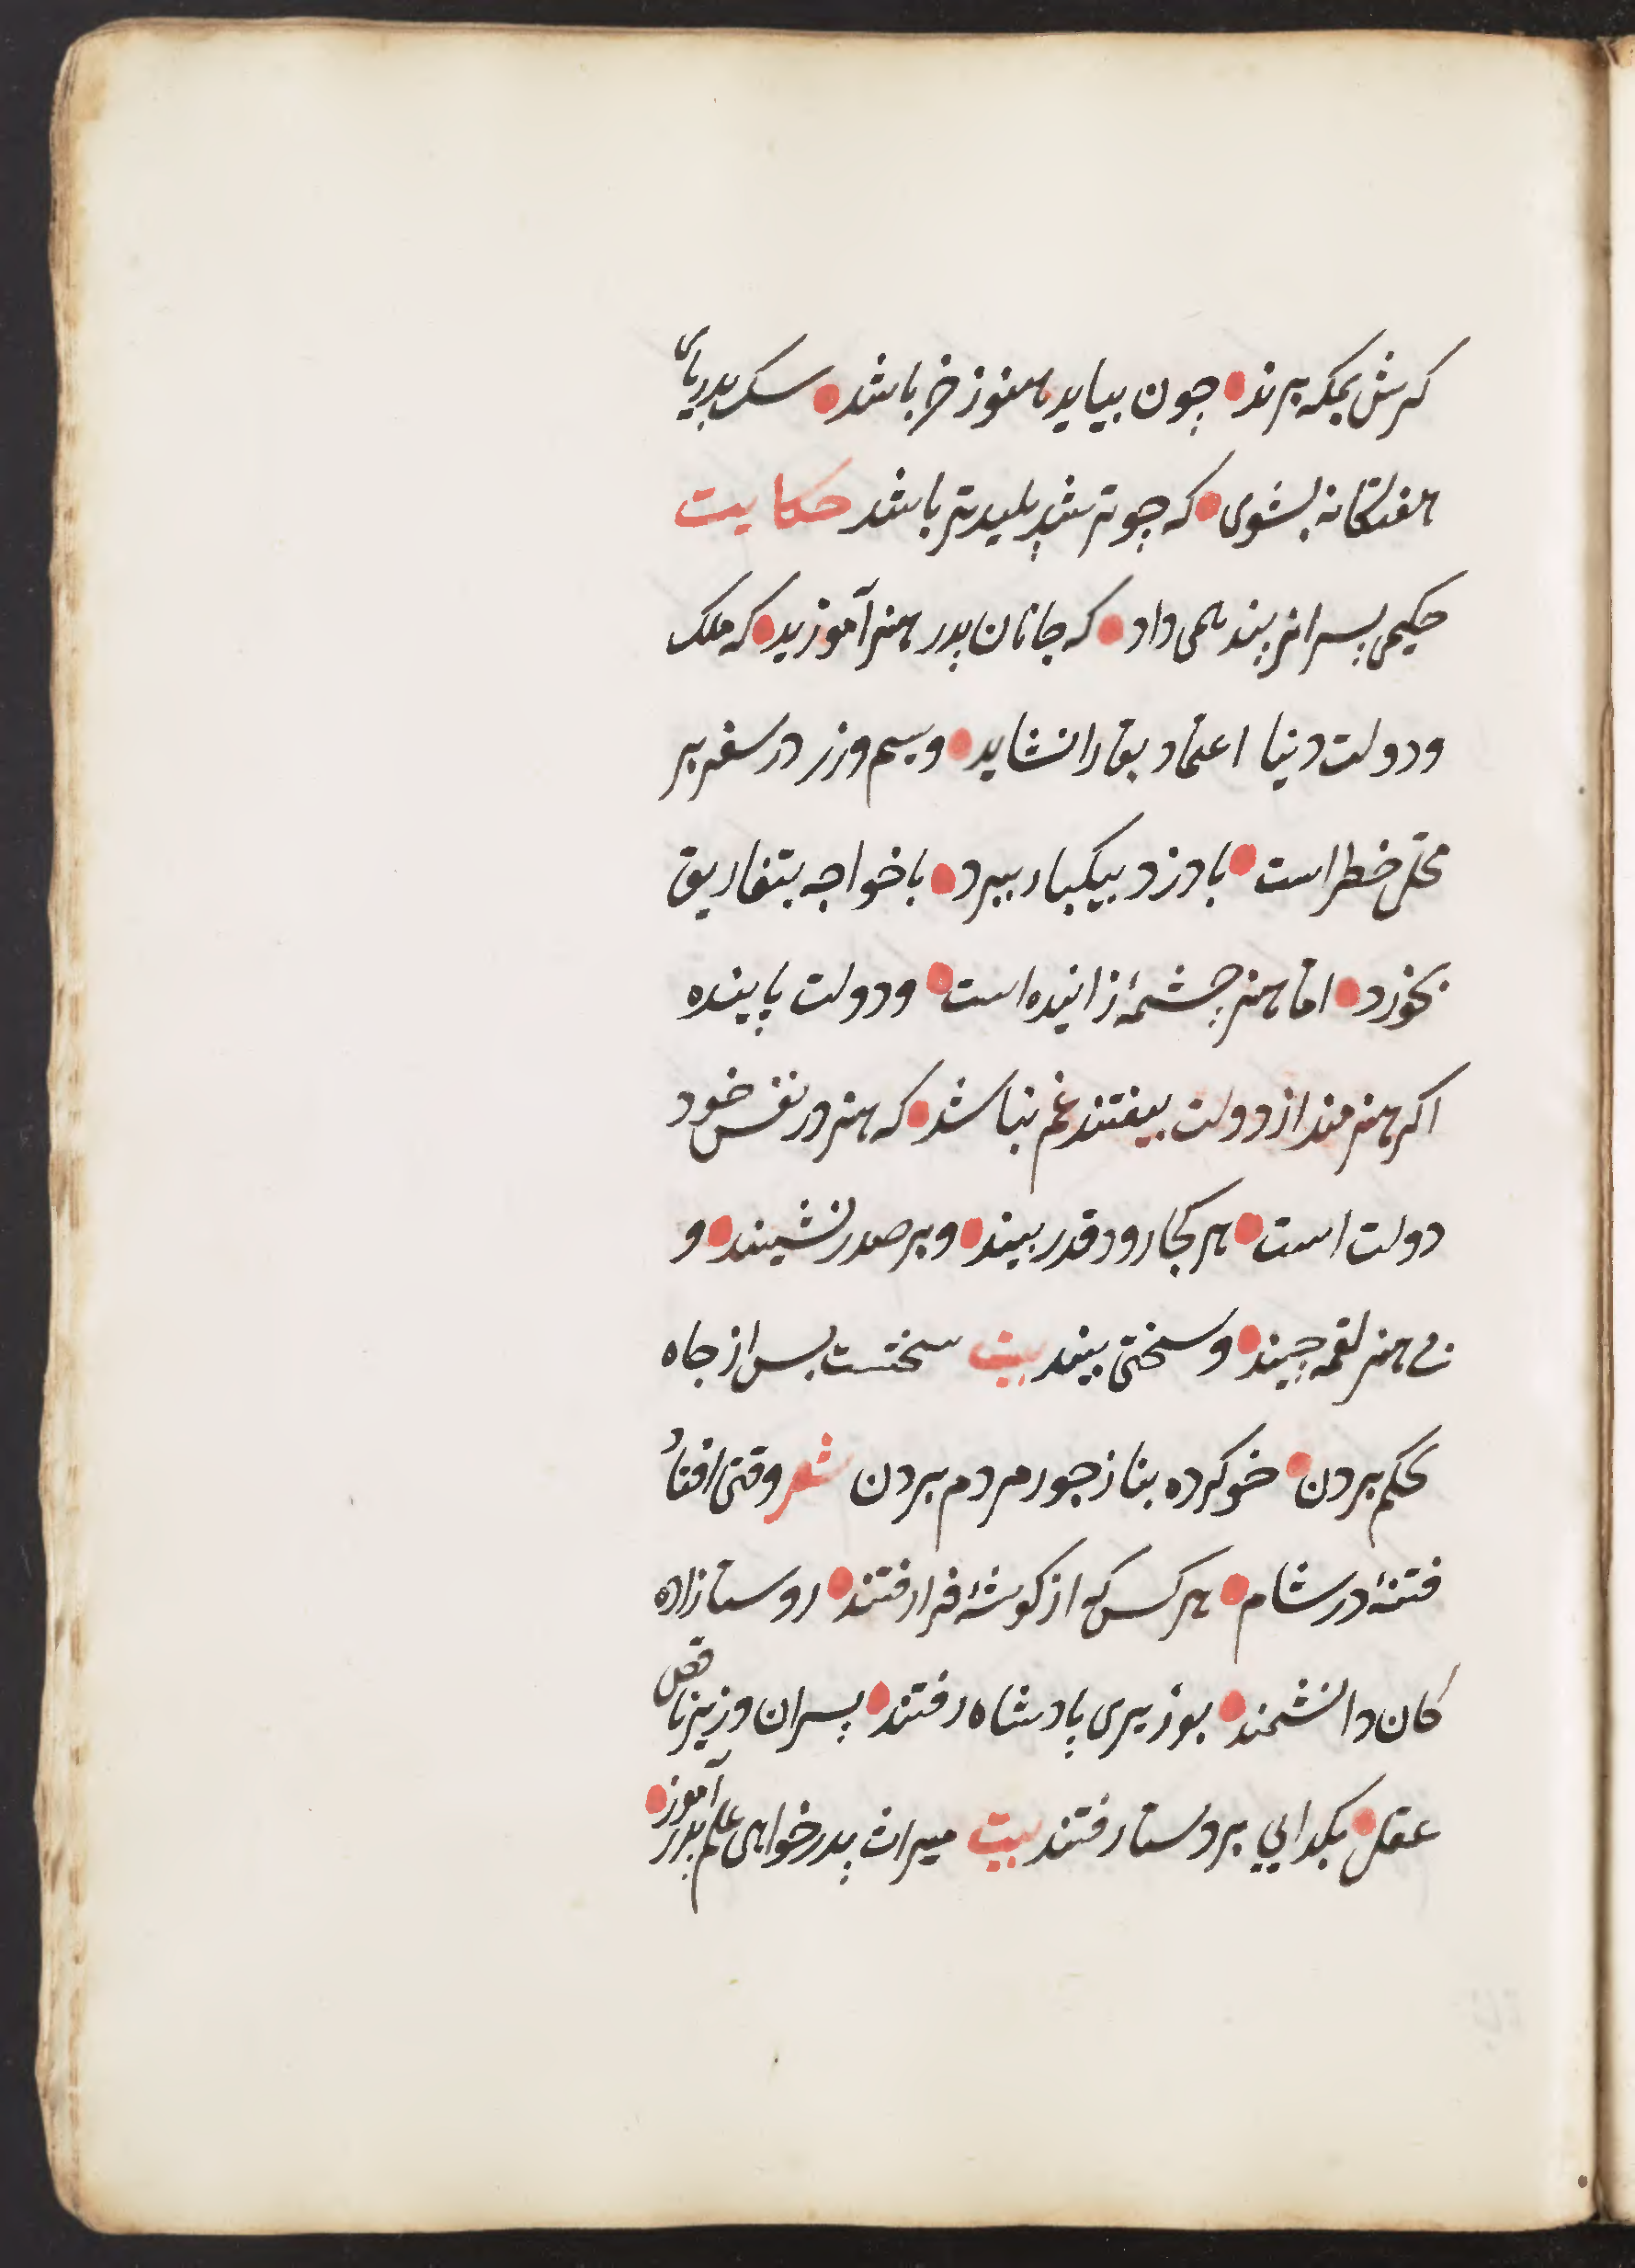 كرش بمكه برند چون بيايد هنوز خر باشد سك بدرياى
هفتكانه بشوى كه چو تر شد پليدتر باشد حكايت
حكيمى پسرانر پند همى داد كه جانان پدر هنر آموزيد كه ملك
ودولت دنيا اعتماد بقا را نشايد وسيم وزر در سفر بر
محل خطر است يا دزد بيكبار ببرد يا خواجه بتفاريق
بخورد اما هنر چشمهٔ زاينده است ودولت پاينده
اكر هنرمند از دولت بيفتند غم نباشد كه هنر در نفس خود
دولت است هر كجا رود قدر بيند وبر صدر نشيند و
بى هنر لقمه چيند وسختى بيند بيت سختست پس از جاه
تحكم بردن خو كرده بناز جور مردم بردن شعر وقتى افتاد
فتنهٔ در شام هر كس كه از كوشهٔ فرا رفتند روستا زاده
كان دانشمند بوزيرى پادشاه رفتند پسران وزير ناقص
عقل بكدايى بروستا رفتند بيت ميراث پدر خواهى علم پدر آموز